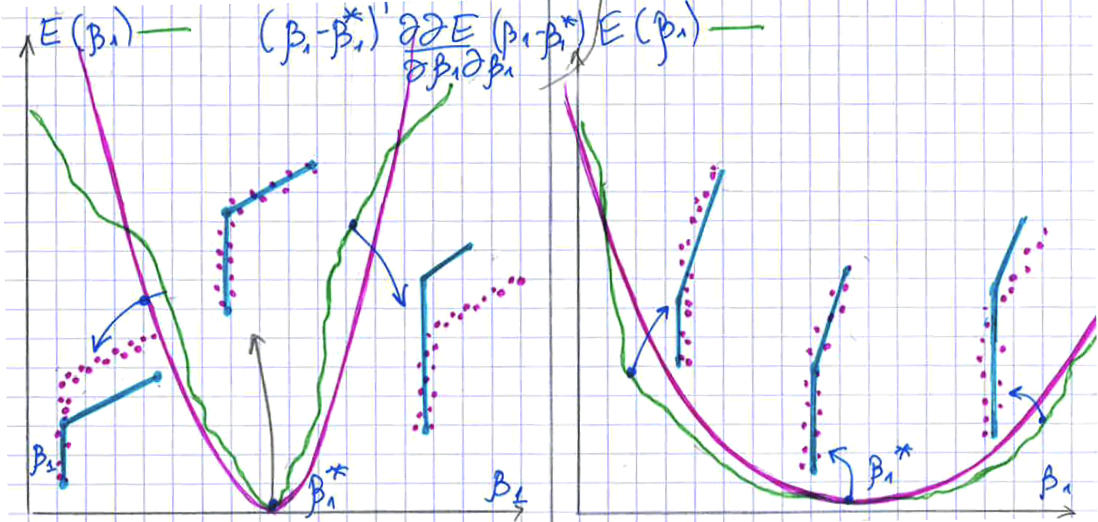 E(β₁)
(β₁-β₁*)' ∂∂E/∂β₁∂β₁ (β₁-β₁*)
E(β₁)
β₁
β₁*
β₁
β₁*
β₁